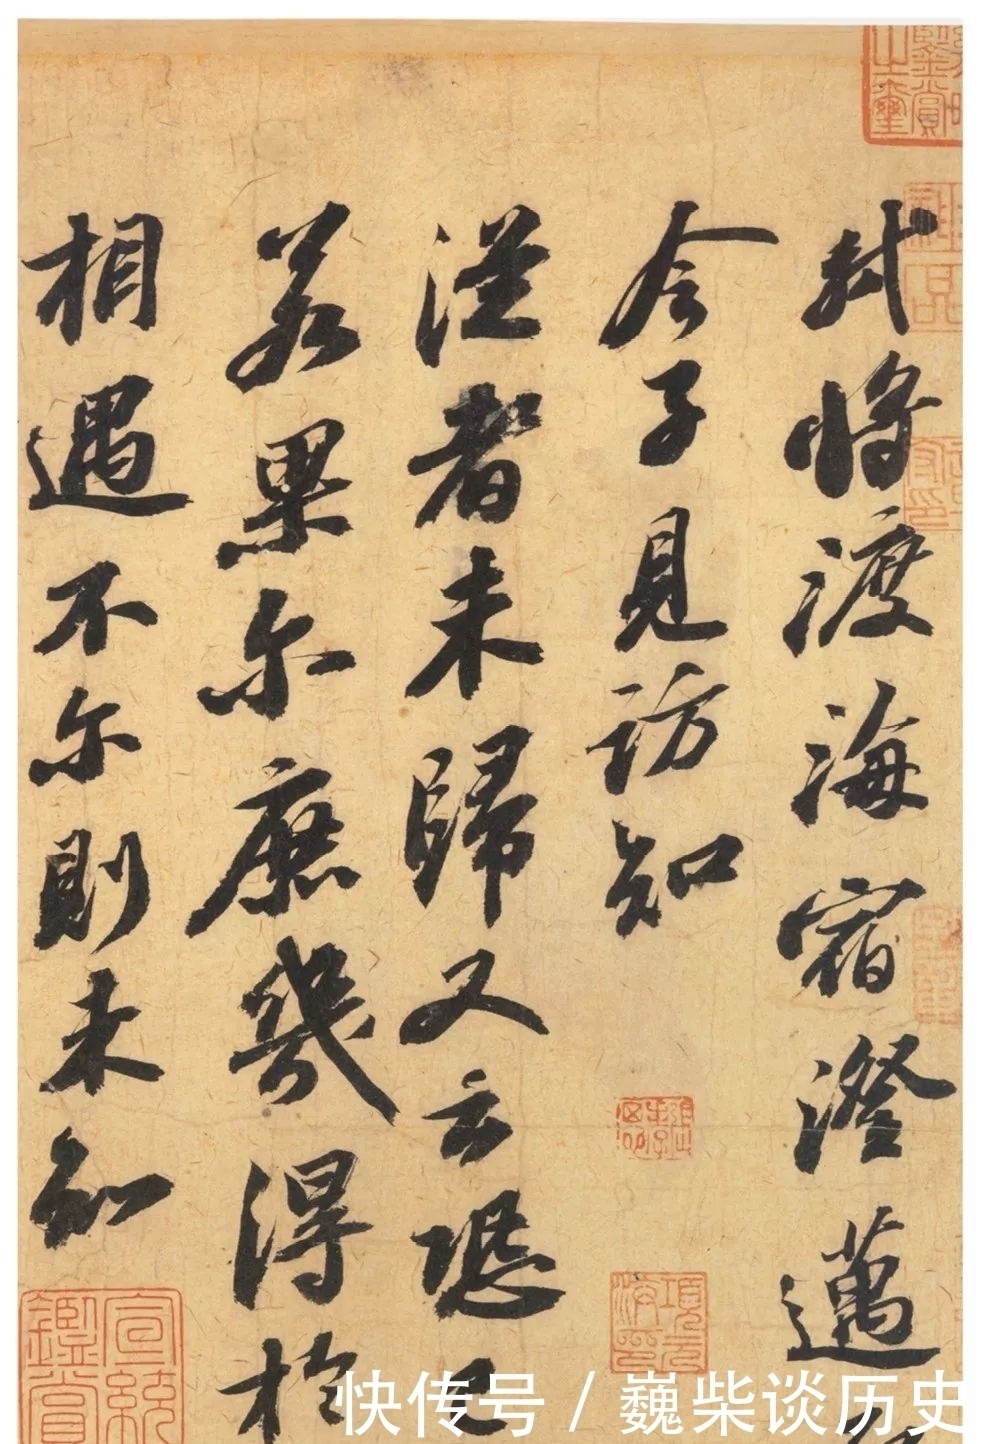 軾將渡海宿澄邁
令子見訪知
從者未歸又云恐已
若果尔庶幾得於
相遇不尔則未知
項元汴印
宣統
鑑賞
快传号 / 巍柴谈历史